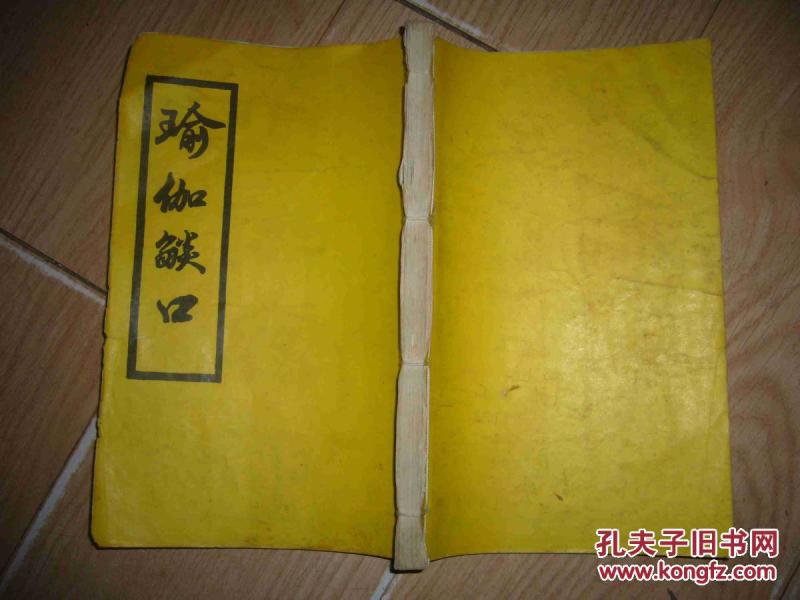 瑜伽燄口
孔夫子旧书网
www.kongfz.com